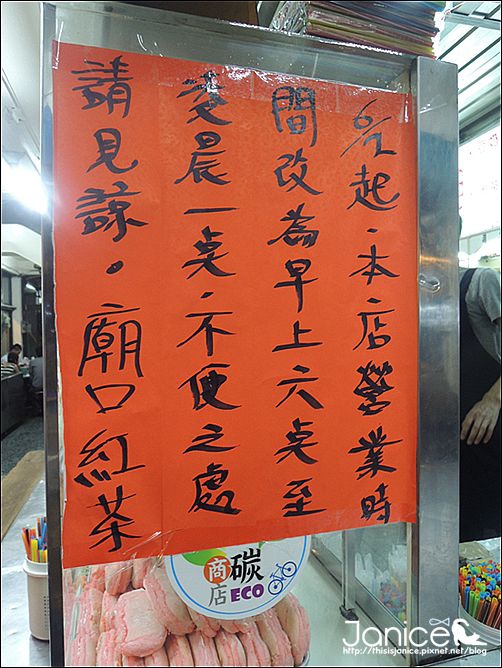 6/1起.本店營業時
間改為早上六桌至
凌晨一桌.不便之處
請見諒。廟口紅茶
商店
碳
ECO
Janice
http://thisisjanice.pixnet.net/blog